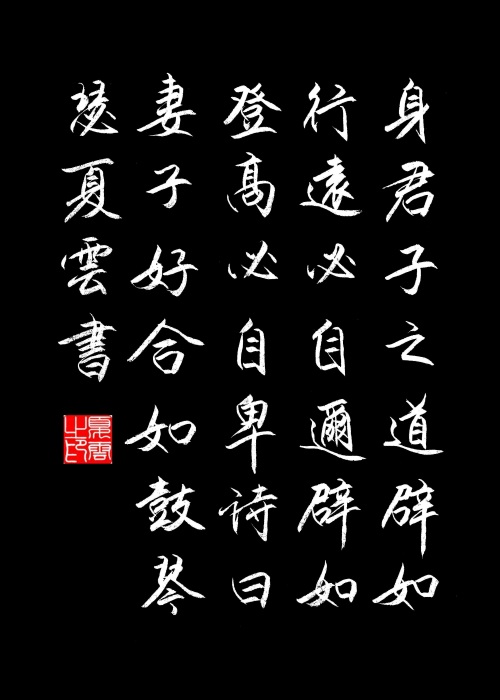 身君子之道辟如
行遠必自邇辟如
登髙必自卑诗曰
妻子好合如鼓琴
瑟夏雲書
夏雲之印